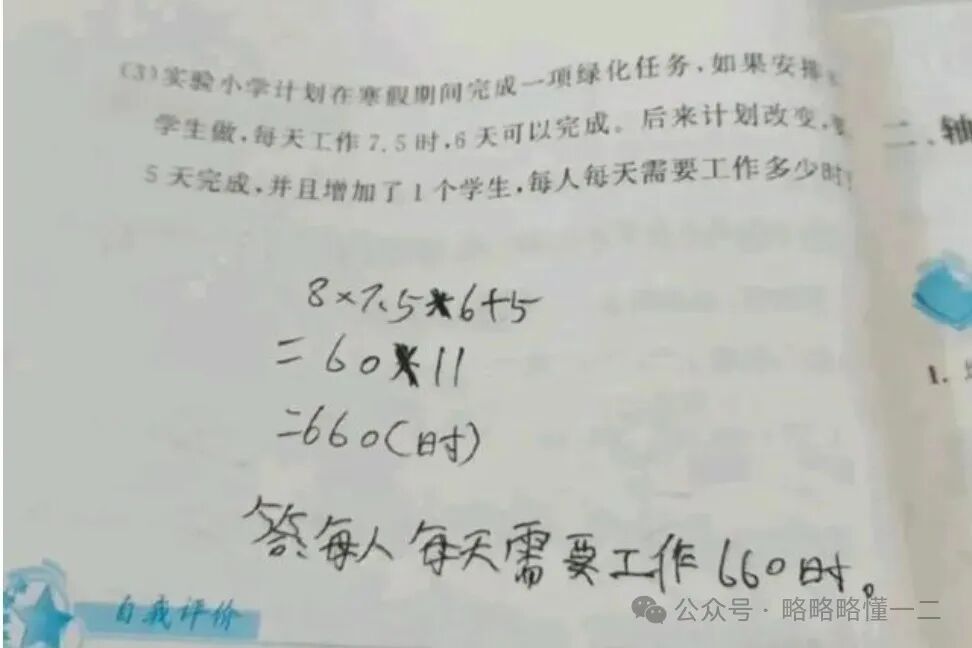 (3)实验小学计划在寒假期间完成一项绿化任务,如果安排
学生做,每天工作7.5时,6天可以完成。后来计划改变,
5天完成,并且增加了1个学生,每人每天需要工作多少时?
8×7.5×6+5
=60×11
=660(时)
答:每人每天需要工作660时。
自我评价
二、轴
1.
公众号·略略略懂一二